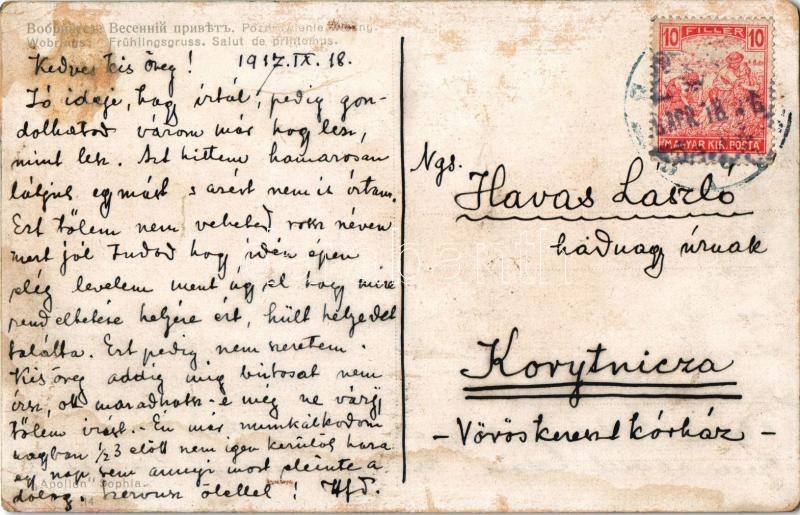 Вобрисега: Весеннiй привѣтъ. Pozdrowienie
Frühlingsgruss. Salut de printemps.
Kedves kis öreg! 1917.IX.18.
Jó ideje, hogy írtál, pedig gon-
dolhatod várom már hogy lesz,
mint lesz. Azt hittem hamarosan
látjuk egymást s azért nem is írtam.
Ezt tőlem nem veheted rossz néven
mert jól tudod hogy idén épen
elég levelem ment úgy el hogy mire
rendeltetése helyére ért, hült helyedet
találta. Ezt pedig nem szeretem.
Kis öreg addig míg biztosat nem
írsz, ott maradhatsz-e még ne várj
tőlem írást. - Én már munkálkodom
nagyban 1/23 előtt nem igen kerülök haza
egy nap sem annyi most eleinte a
dolog. Szervusz ölellel!
"Apollon" Sophia
10 FILLÉR 10
MAGYAR KIR. POSTA
Ngs.
Havas László
hadnagy úrnak
Korytnicza
- Vöröskereszt kórház -